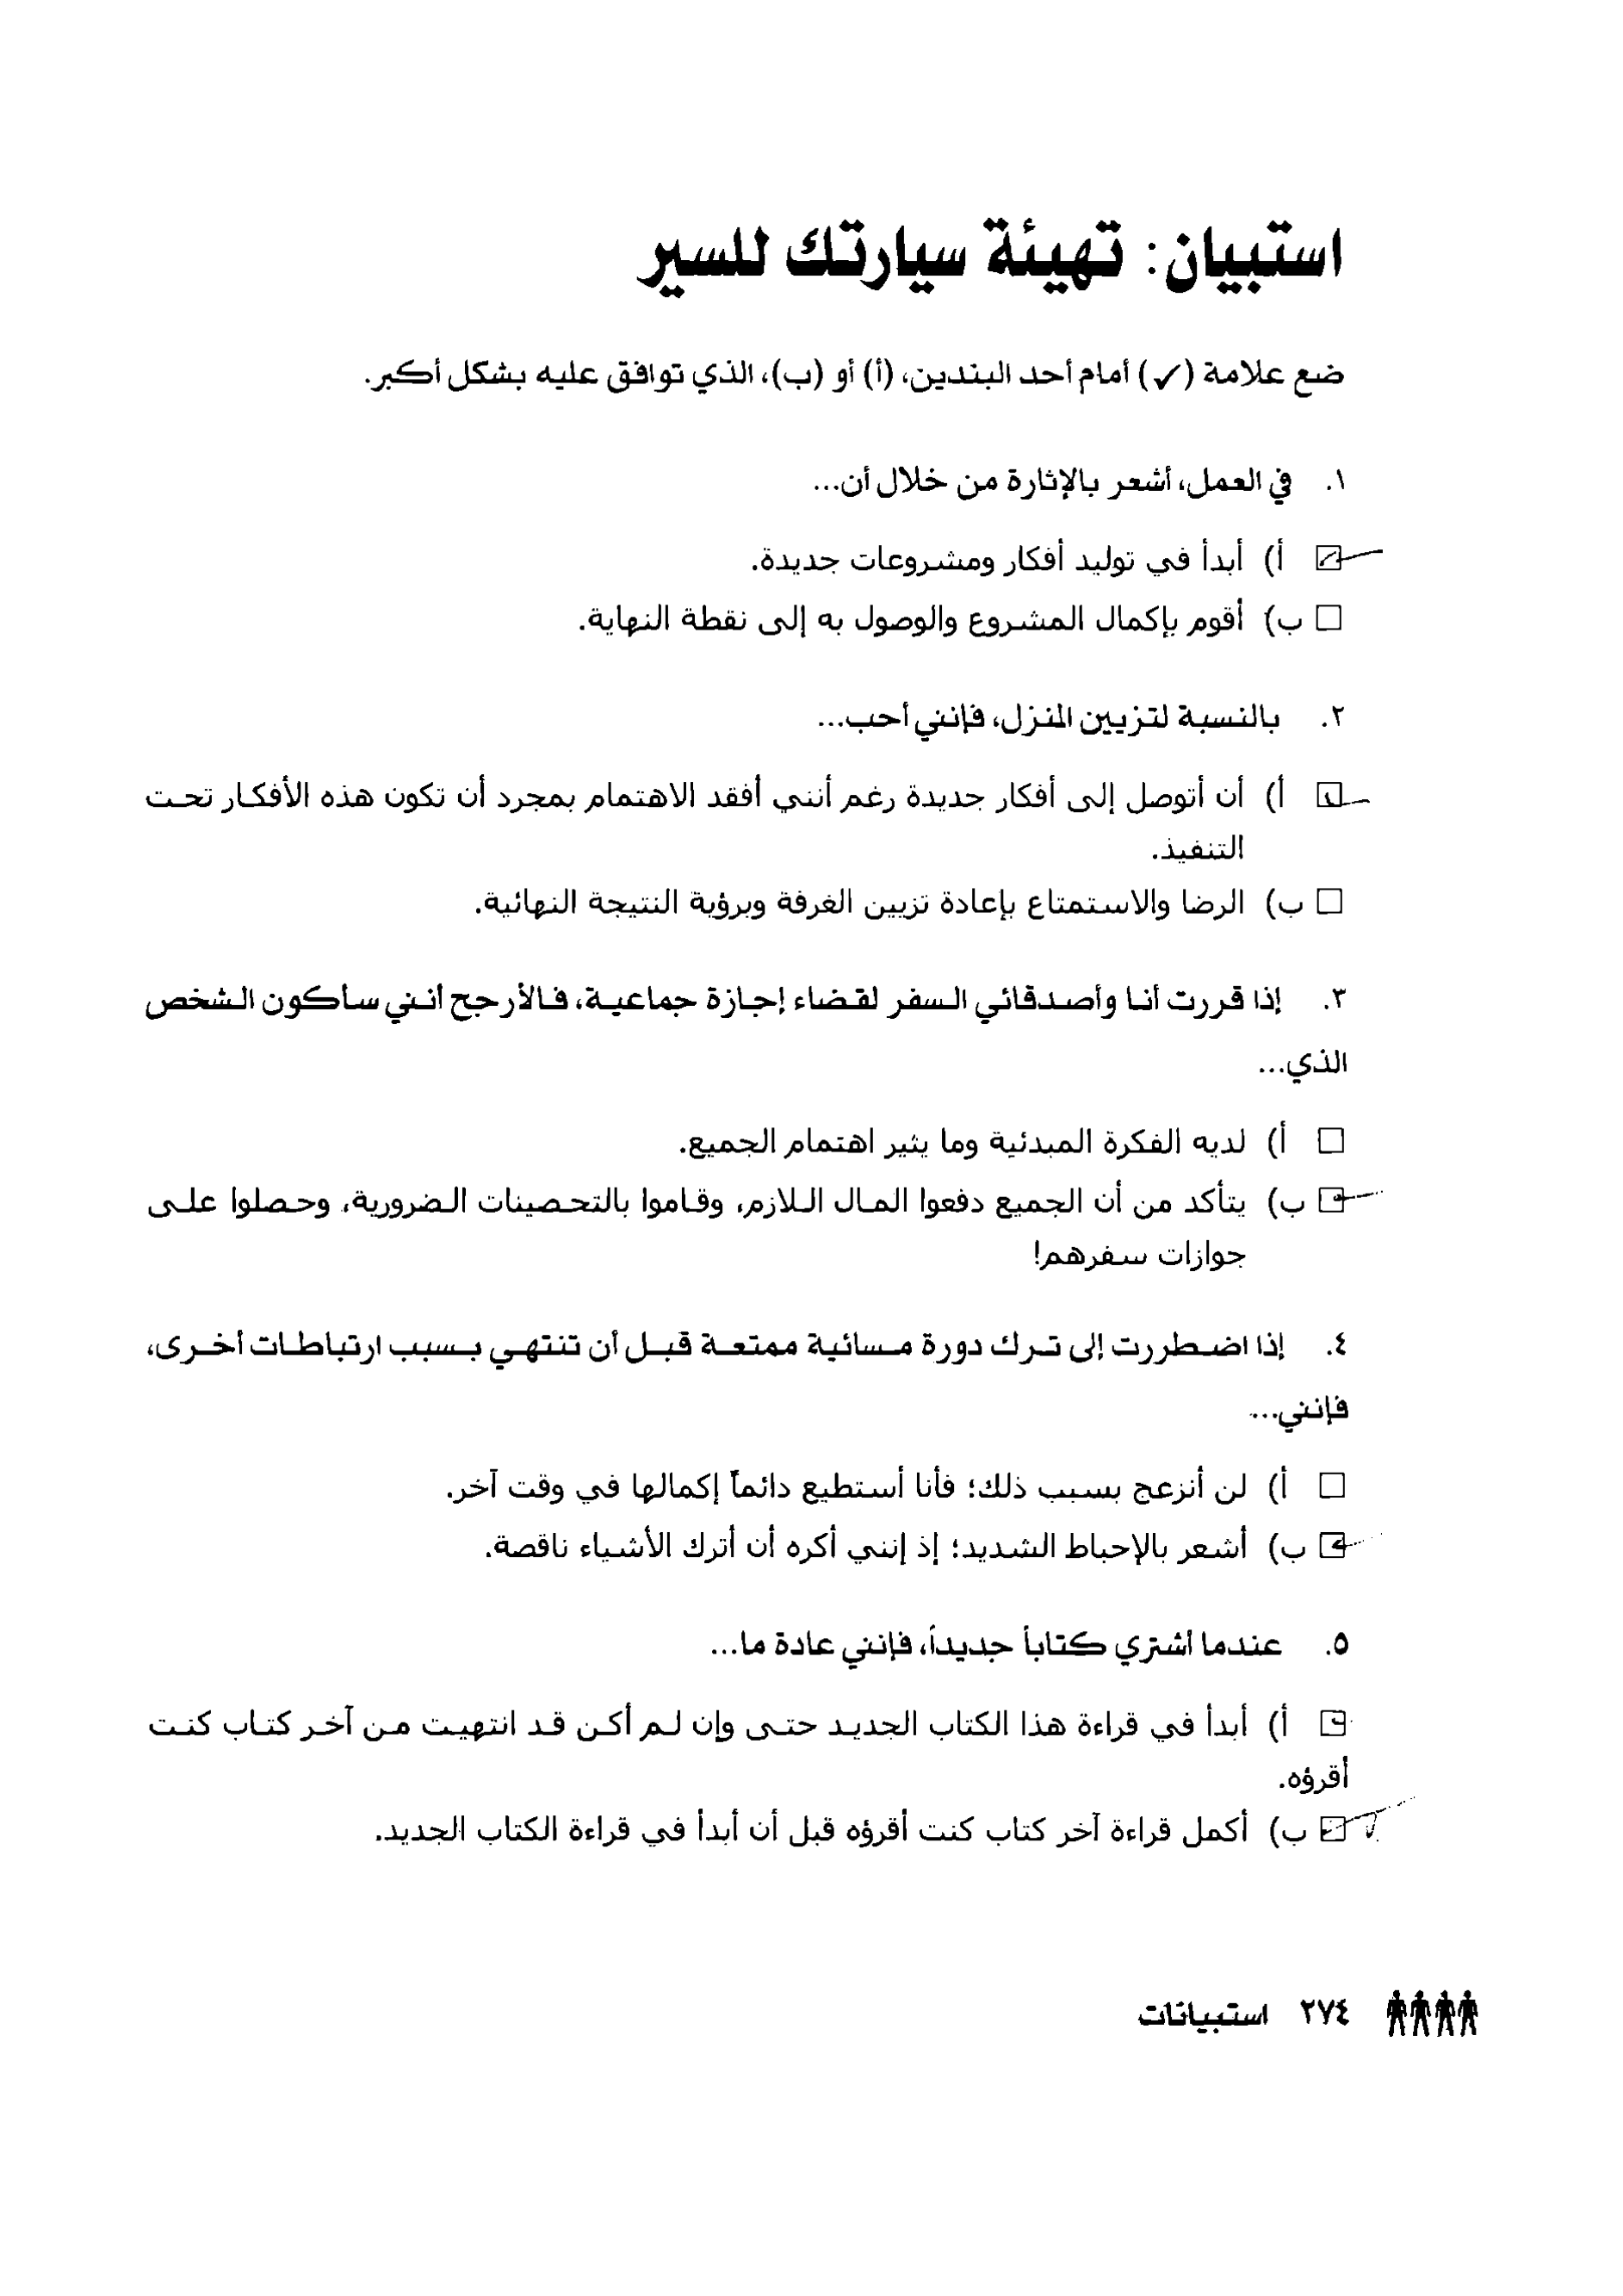 استبيان: تهيئة سيارتك للسير
ضع علامة (✓) أمام أحد البندين، (أ) أو (ب)، الذي توافق عليه بشكل أكبر.
١. في العمل، أشعر بالإثارة من خلال أن...
أ) أبدأ في توليد أفكار ومشروعات جديدة.
ب) أقوم بإكمال المشروع والوصول به إلى نقطة النهاية.
٢. بالنسبة لتزيين المنزل، فإنني أحب...
أ) أن أتوصل إلى أفكار جديدة رغم أنني أفقد الاهتمام بمجرد أن تكون هذه الأفكار تحت
التنفيذ.
ب) الرضا والاستمتاع بإعادة تزيين الغرفة وبرؤية النتيجة النهائية.
٣. إذا قررت أنا وأصدقائي السفر لقضاء إجازة جماعية، فالأرجح أنني سأكون الشخص
الذي...
أ) لديه الفكرة المبدئية وما يثير اهتمام الجميع.
ب) يتأكد من أن الجميع دفعوا المال اللازم، وقاموا بالتحصينات الضرورية، وحصلوا على
جوازات سفرهم!
٤. إذا اضطررت إلى ترك دورة مسائية ممتعة قبل أن تنتهي بسبب ارتباطات أخرى،
فإنني...
أ) لن أنزعج بسبب ذلك؛ فأنا أستطيع دائماً إكمالها في وقت آخر.
ب) أشعر بالإحباط الشديد؛ إذ إنني أكره أن أترك الأشياء ناقصة.
٥. عندما أشتري كتاباً جديداً، فإنني عادة ما...
أ) أبدأ في قراءة هذا الكتاب الجديد حتى وإن لم أكن قد انتهيت من آخر كتاب كنت
أقرؤه.
ب) أكمل قراءة آخر كتاب كنت أقرؤه قبل أن أبدأ في قراءة الكتاب الجديد.
٢٧٤ استبيانات